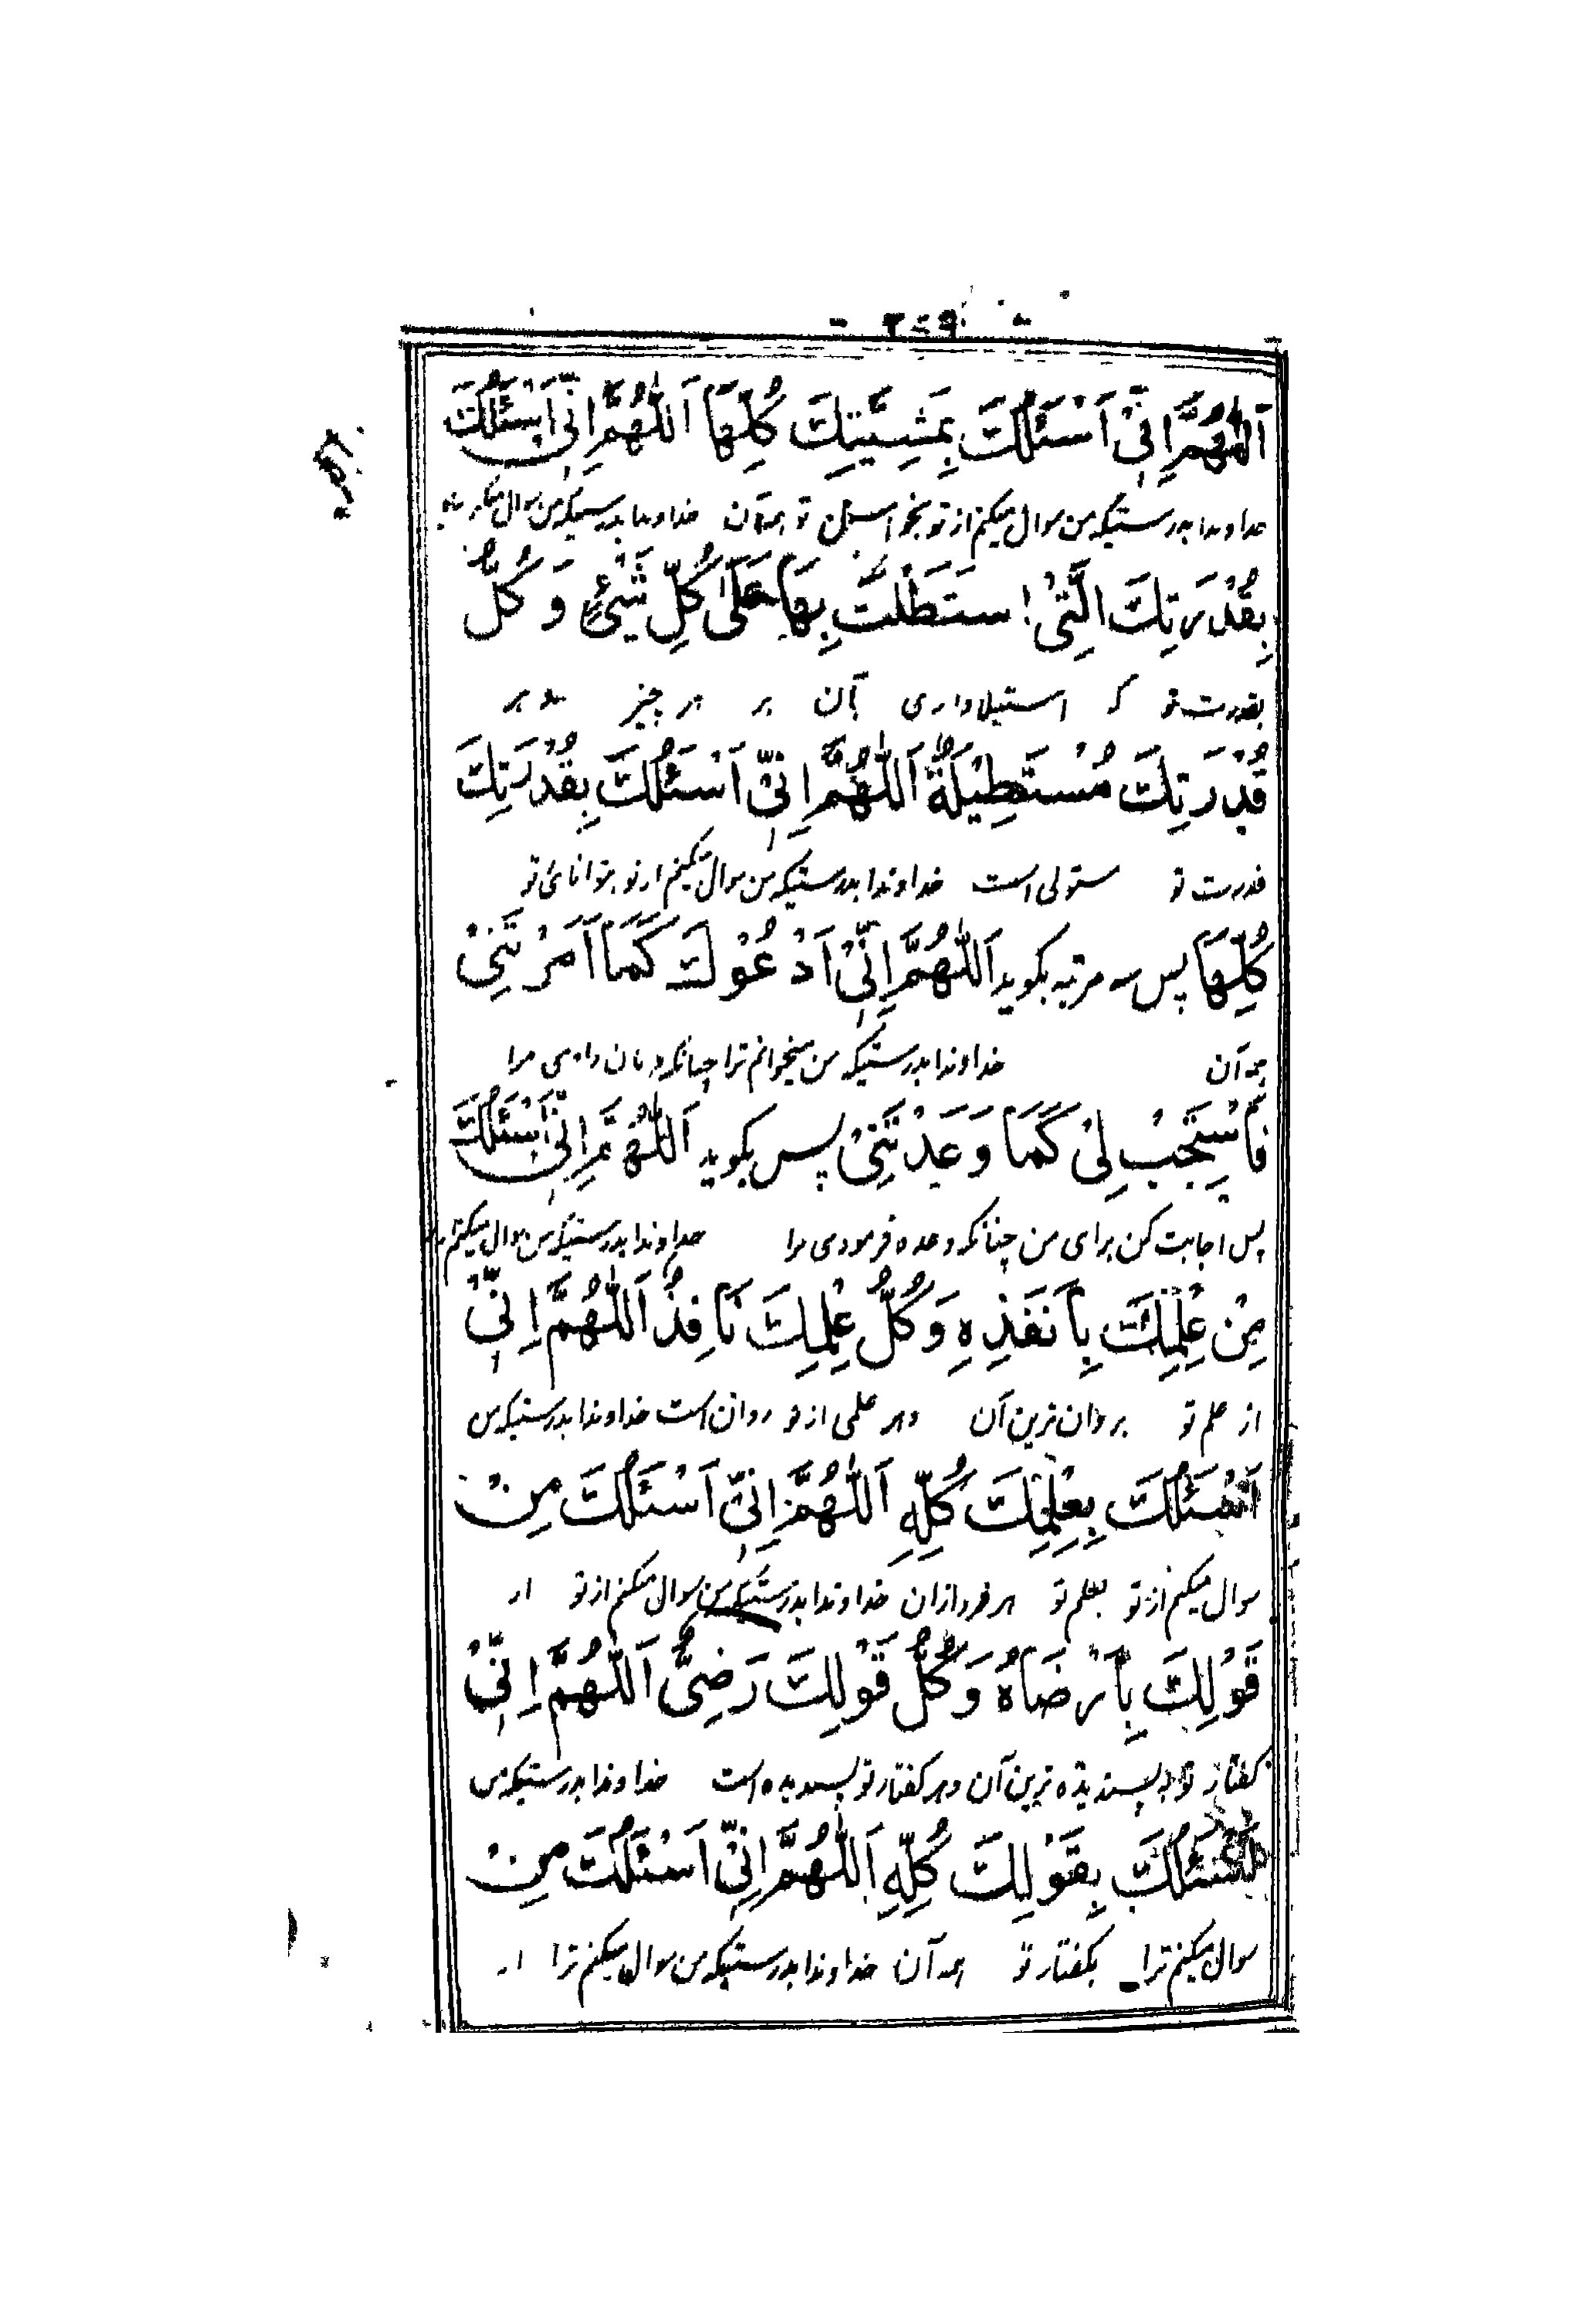 اَللّٰهُمَّ اِنِّیْ اَسْئَلُكَ بِمَشِیَّتِكَ كُلِّهَا اَللّٰهُمَّ اِنِّیْ اَسْئَلُكَ
خداوندا بدرستیکه من سوال میکنم از تو بخواستن تو همه آن خداوندا بدرستیکه من سوال میکنم
بِقُدْرَتِكَ الَّتِیْ اسْتَطَلْتَ بِهَا عَلٰی كُلِّ شَیْئٍ وَ كُلُّ
بقدرت تو که استیلا داری بآن بر هر چیز و هر
قُدْرَتِكَ مُسْتَطِیْلَةٌ اَللّٰهُمَّ اِنِّیْ اَسْئَلُكَ بِقُدْرَتِكَ
قدرت تو مستولی است خداوندا بدرستیکه من سوال میکنم از تو بتوانائی تو
كُلِّهَا پس سه مرتبه بگوید اَللّٰهُمَّ اِنِّیْ اَدْعُوْكَ كَمَا اَمَرْتَنِیْ
همه آن خداوندا بدرستیکه من میخوانم ترا چنانکه فرمان دادی مرا
فَاسْتَجِبْ لِیْ كَمَا وَعَدْتَنِیْ پس بگوید اَللّٰهُمَّ اِنِّیْ اَسْئَلُكَ
پس اجابت کن برای من چنانکه وعده فرمودی مرا خداوندا بدرستیکه من سوال میکنم
مِنْ عِلْمِكَ بِاَنْفَذِهٖ وَ كُلُّ عِلْمِكَ نَافِذٌ اَللّٰهُمَّ اِنِّیْ
از علم تو بروان ترین آن و هر علمی از تو روان است خداوندا بدرستیکه من
اَسْئَلُكَ بِعِلْمِكَ كُلِّهٖ اَللّٰهُمَّ اِنِّیْ اَسْئَلُكَ مِنْ
سوال میکنم از تو بعلم تو هر فرد ازان خداوندا بدرستیکه من سوال میکنم از تو از
قَوْلِكَ بِاَرْضَاهُ وَ كُلُّ قَوْلِكَ رَضِیٌّ اَللّٰهُمَّ اِنِّیْ
گفتار تو به پسندیده ترین آن و هر گفتار تو پسندیده است خداوندا بدرستیکه من
اَسْئَلُكَ بِقَوْلِكَ كُلِّهٖ اَللّٰهُمَّ اِنِّیْ اَسْئَلُكَ مِنْ
سوال میکنم ترا بگفتار تو همه آن خداوندا بدرستیکه من سوال میکنم ترا از